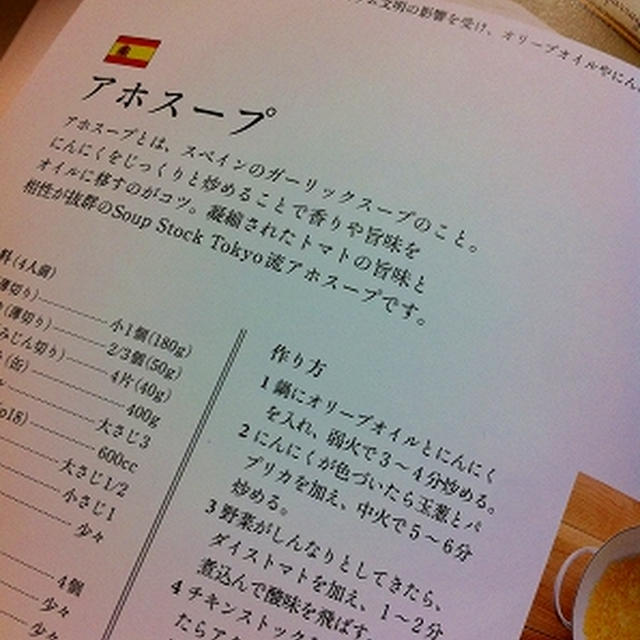 文明の影響を受け、オリーブオイルやにん
アホスープ
アホスープとは、スペインのガーリックスープのこと。
にんにくをじっくりと炒めることで香りや旨味を
オイルに移すのがコツ。凝縮されたトマトの旨味と
相性が抜群のSoup Stock Tokyo流アホスープです。
料(4人前)
薄切り)――小1個(180g)
(薄切り)――2/3個(50g)
みじん切り)――4片(40g)
(缶)――400g
――大さじ3
p18)――600cc
――大さじ1/2
――小さじ1
――少々
――4個
――少々
――少々
作り方
1 鍋にオリーブオイルとにんにく
を入れ、弱火で3〜4分炒める。
2 にんにくが色づいたら玉葱とパ
プリカを加え、中火で5〜6分
炒める。
3 野菜がしんなりとしてきたら、
ダイストマトを加え、1〜2分
煮込んで酸味を飛ばす。
4 チキンストック
たらア